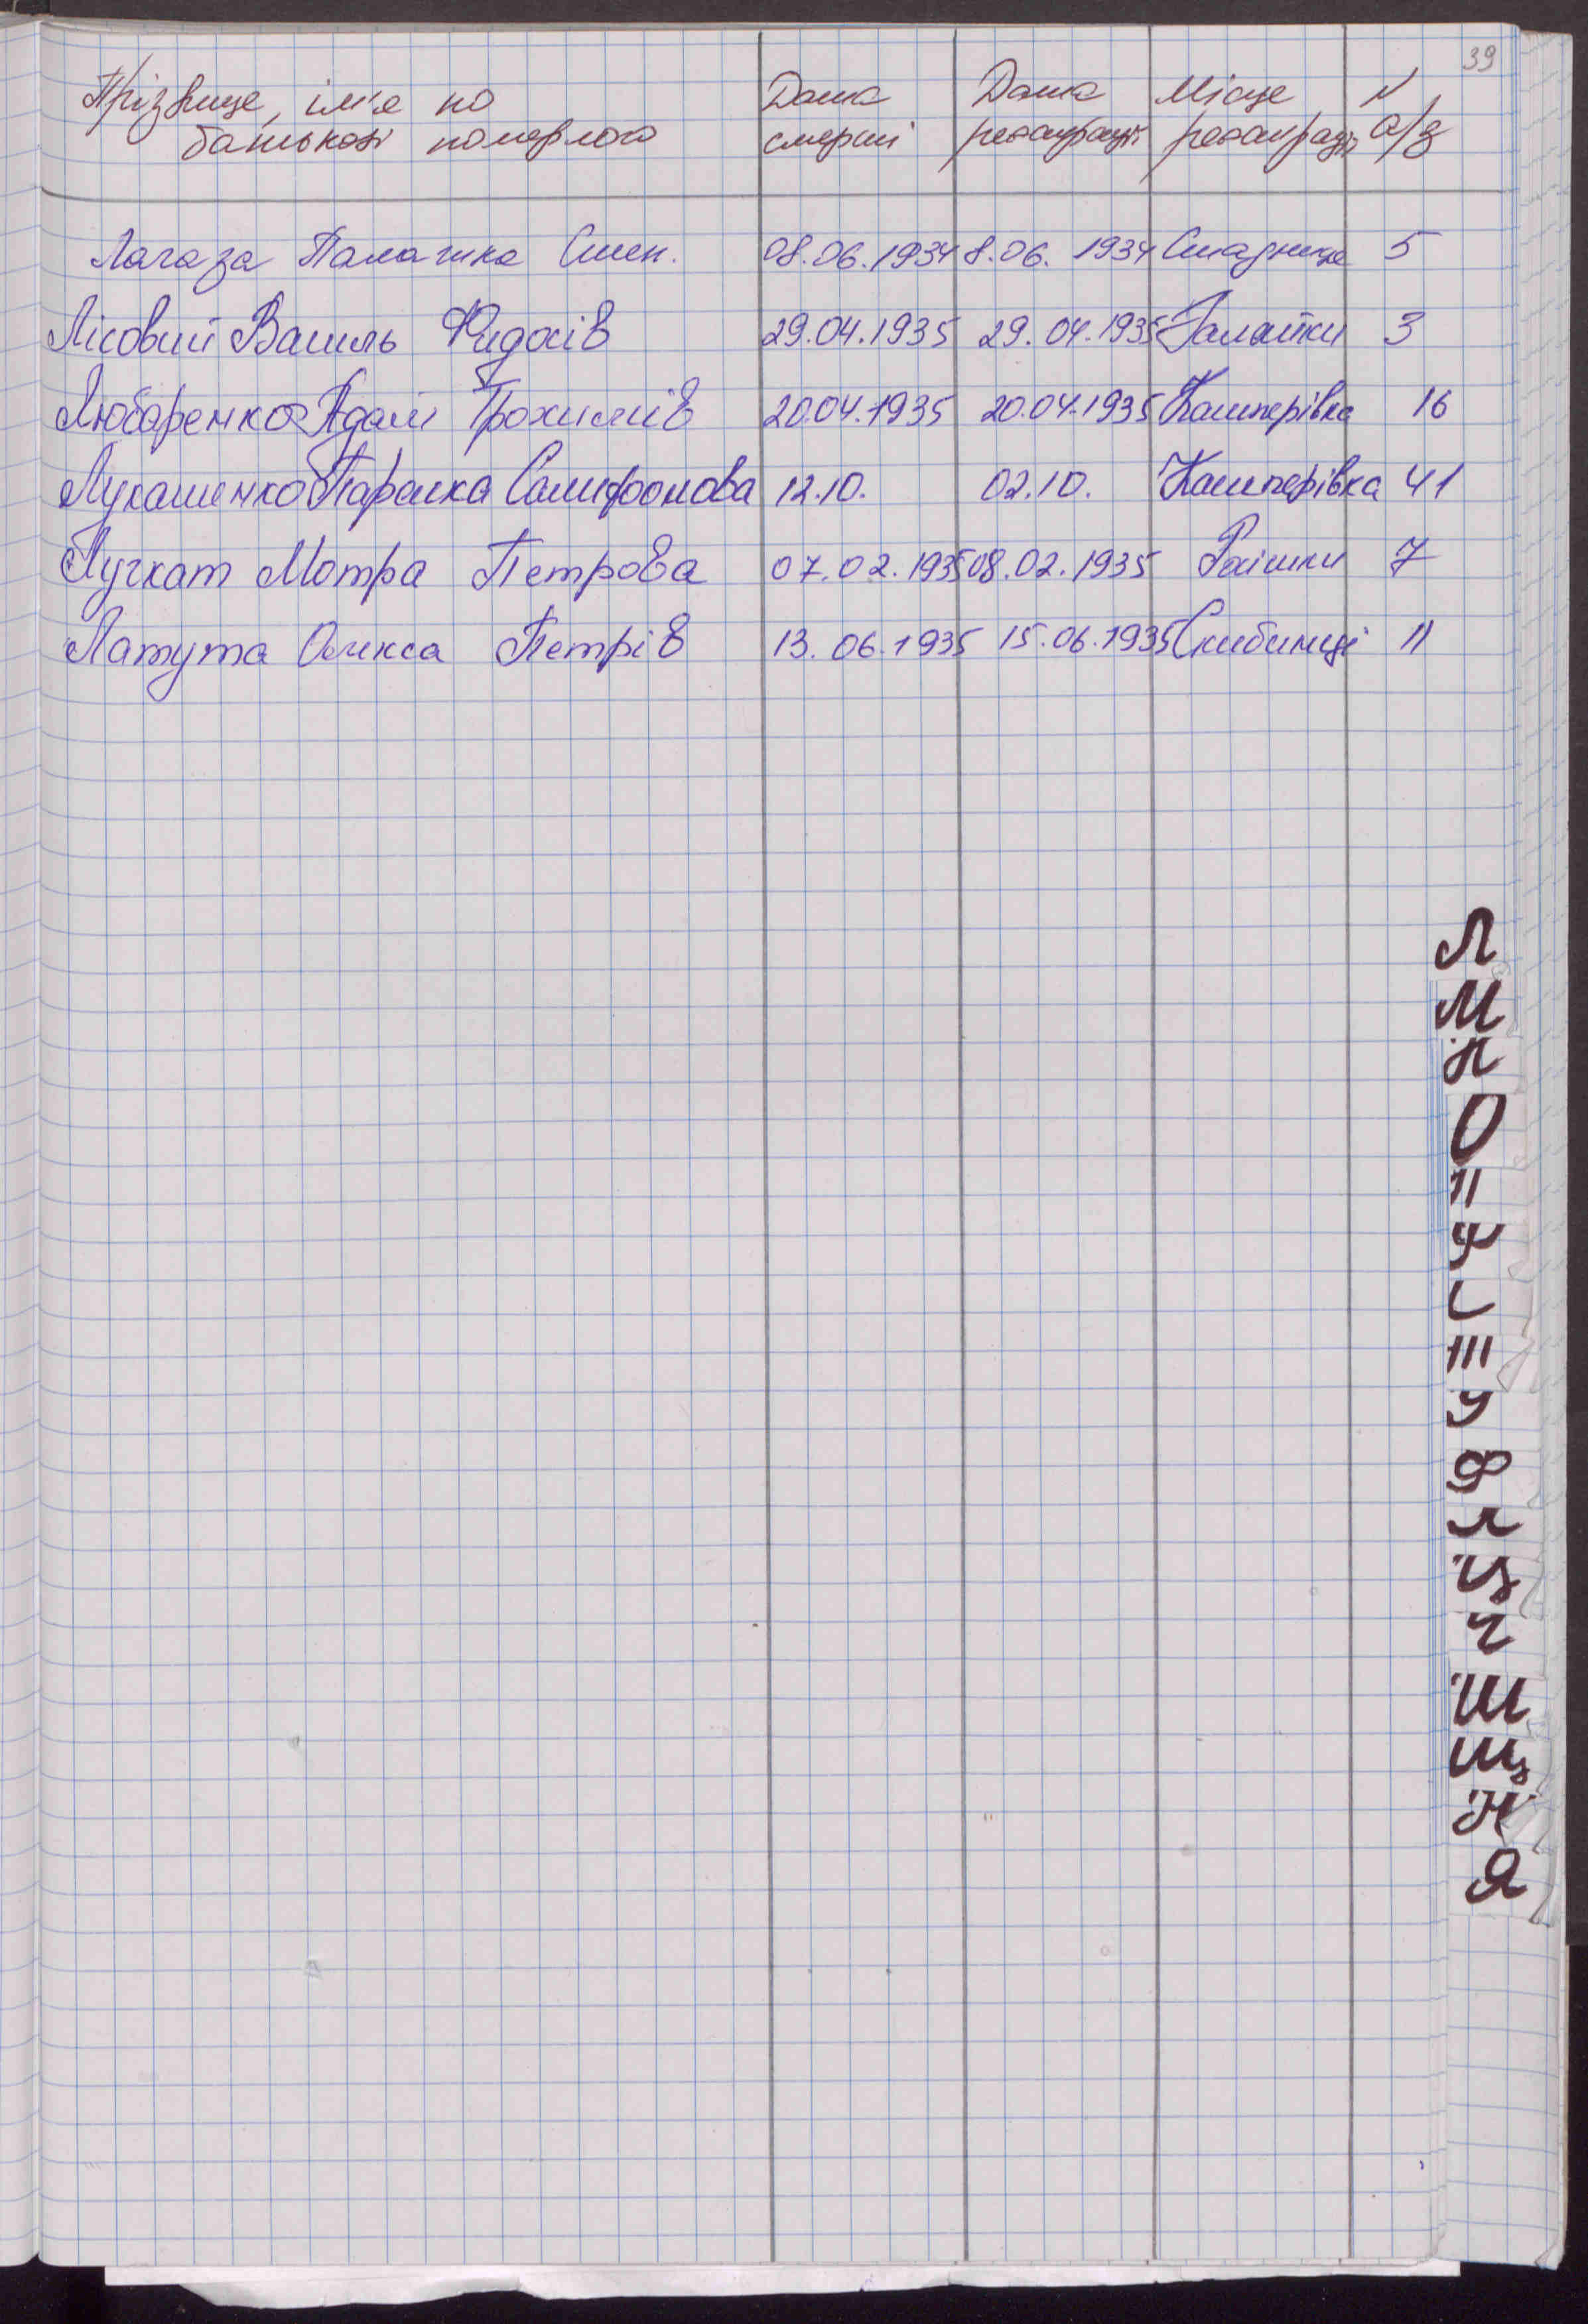 39
Прізвище, ім'я по Дата Дата Місце N
батькові померлого смерті реєстрації реєстрації а/з
Лагаза Палажка Степ. 08.06.1934 8.06. 1934 Снадница 5
Лісовий Василь Федосів 29.04.1935 29.04.1935 Галайки 3
Любаренко Адам Трохимів 20.04.1935 20.04.1935 Кашперівка 16
Лукашенко Параска Самифонова 12.10. 02.10. Кашперівка 41
Лучкат Мотра Петрова 07.02.1935 08.02.1935 Росішки 7
Латута Олекса Петрів 13.06.1935 15.06.1935 Скибинці 11
Л
М
Н
О
П
Р
С
Т
У
Ф
Х
Ц
Ч
Ш
Щ
Ю
Я